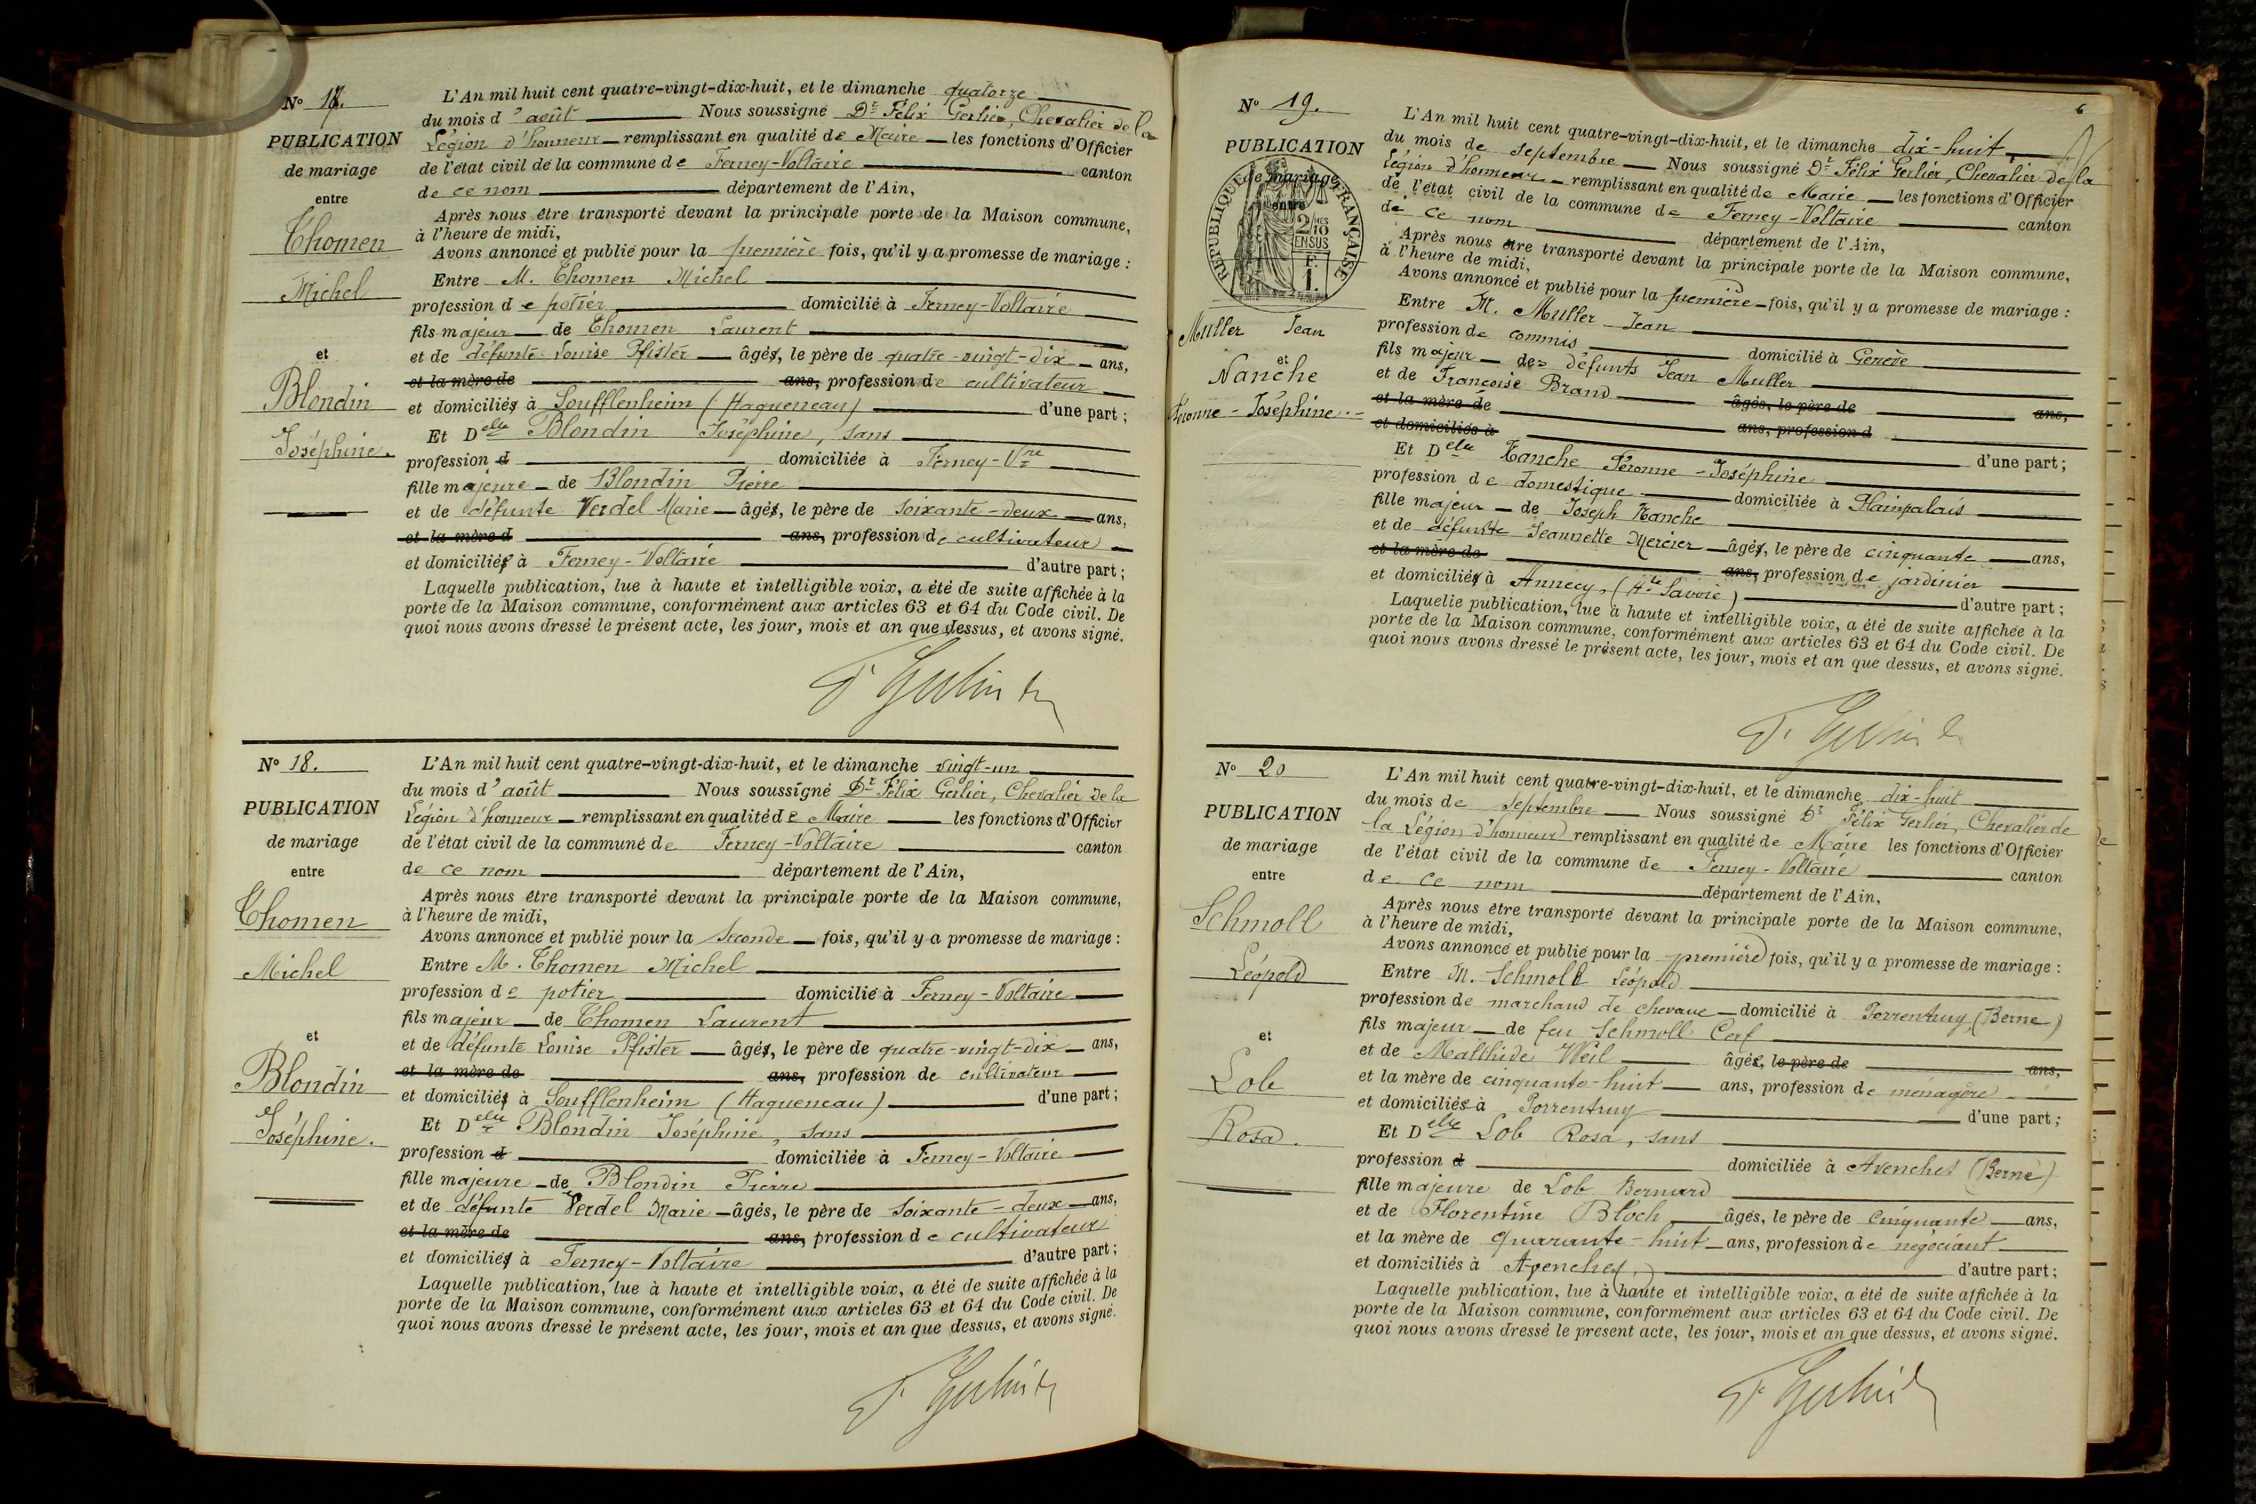 N° 17.
PUBLICATION
de mariage
entre
Thomen
Michel
et
Blondin
Joséphine.
L'An mil huit cent quatre-vingt-dix-huit, et le dimanche quatorze
du mois d'août Nous soussigné Dr Félix Gerlier, Chevalier de la
Légion d'honneur remplissant en qualité de Maire les fonctions d'Officier
de l'état civil de la commune de Ferney-Voltaire canton
de ce nom département de l'Ain,
Après nous être transporté devant la principale porte de la Maison commune,
à l'heure de midi,
Avons annoncé et publié pour la première fois, qu'il y a promesse de mariage :
Entre M. Thomen Michel
profession de potier domicilié à Ferney-Voltaire
fils majeur de Thomen Laurent
et de défunte Louise Pfister âgés, le père de quatre-vingt-dix ans,
et la mère de ans, profession de cultivateur
et domiciliés à Soufflenheim (Haguenau) d'une part ;
Et Delle Blondin Joséphine, sans
profession d domiciliée à Ferney-Vre
fille majeure de Blondin Pierre
et de défunte Verdel Marie âgés, le père de soixante-deux ans,
et la mère d ans, profession de cultivateur
et domiciliés à Ferney-Voltaire d'autre part ;
Laquelle publication, lue à haute et intelligible voix, a été de suite affichée à la
porte de la Maison commune, conformément aux articles 63 et 64 du Code civil. De
quoi nous avons dressé le présent acte, les jour, mois et an que dessus, et avons signé.
N° 18.
PUBLICATION
de mariage
entre
Thomen
Michel
et
Blondin
Joséphine.
L'An mil huit cent quatre-vingt-dix-huit, et le dimanche vingt-un
du mois d'août Nous soussigné Dr Félix Gerlier, Chevalier de la
Légion d'honneur remplissant en qualité de Maire les fonctions d'Officier
de l'état civil de la commune de Ferney-Voltaire canton
de ce nom département de l'Ain,
Après nous être transporté devant la principale porte de la Maison commune,
à l'heure de midi,
Avons annoncé et publié pour la seconde fois, qu'il y a promesse de mariage :
Entre M. Thomen Michel
profession de potier domicilié à Ferney-Voltaire
fils majeur de Thomen Laurent
et de défunte Louise Pfister âgés, le père de quatre-vingt-dix ans,
et la mère de ans, profession de cultivateur
et domiciliés à Soufflenheim (Haguenau) d'une part ;
Et Delle Blondin Joséphine, sans
profession d domiciliée à Ferney-Voltaire
fille majeure de Blondin Pierre
et de défunte Verdel Marie âgés, le père de soixante-deux ans,
et la mère de ans, profession de cultivateur
et domiciliés à Ferney-Voltaire d'autre part ;
Laquelle publication, lue à haute et intelligible voix, a été de suite affichée à la
porte de la Maison commune, conformément aux articles 63 et 64 du Code civil. De
quoi nous avons dressé le présent acte, les jour, mois et an que dessus, et avons signé.
6
N° 19.
PUBLICATION
de mariage
entre
RÉPUBLIQUE FRANÇAISE
2/10 EN SUS
F. 1.
Muller Jean
et
Nanche
Péronne-Joséphine.
L'An mil huit cent quatre-vingt-dix-huit, et le dimanche dix-huit
du mois de septembre Nous soussigné Dr Félix Gerlier, Chevalier de la
Légion d'honneur remplissant en qualité de Maire les fonctions d'Officier
de l'état civil de la commune de Ferney-Voltaire canton
de ce nom département de l'Ain,
Après nous être transporté devant la principale porte de la Maison commune,
à l'heure de midi,
Avons annoncé et publié pour la première fois, qu'il y a promesse de mariage :
Entre M. Muller Jean
profession de commis domicilié à Genève
fils majeur de défunts Jean Muller
et de Françoise Brand
et la mère de âgés, le père de ans,
et domiciliés à ans, profession d
Et Delle Nanche Péronne-Joséphine d'une part ;
profession de domestique domiciliée à Plainpalais
fille majeur de Joseph Nanche
et de défunte Jeannette Mercier âgés, le père de cinquante ans,
et la mère de ans, profession de jardinier
et domiciliés à Annecy, (Hte Savoie) d'autre part ;
Laquelle publication, lue à haute et intelligible voix, a été de suite affichée à la
porte de la Maison commune, conformément aux articles 63 et 64 du Code civil. De
quoi nous avons dressé le présent acte, les jour, mois et an que dessus, et avons signé.
N° 20
PUBLICATION
de mariage
entre
Schmoll
Léopold
et
Lob
Rosa.
L'An mil huit cent quatre-vingt-dix-huit, et le dimanche dix-huit
du mois de septembre Nous soussigné Dr Félix Gerlier, Chevalier de
la Légion d'honneur remplissant en qualité de Maire les fonctions d'Officier
de l'état civil de la commune de Ferney-Voltaire canton
de ce nom département de l'Ain,
Après nous être transporté devant la principale porte de la Maison commune,
à l'heure de midi,
Avons annoncé et publié pour la première fois, qu'il y a promesse de mariage :
Entre M. Schmoll Léopold
profession de marchand de chevaux domicilié à Porrentruy (Berne)
fils majeur de feu Schmoll Cerf
et de Malthide Weil âgés, le père de ans,
et la mère de cinquante-huit ans, profession de ménagère
et domiciliés à Porrentruy d'une part ;
Et Delle Lob Rosa, sans
profession d domiciliée à Avenches (Berne)
fille majeure de Lob Bernard
et de Florentine Bloch âgés, le père de cinquante ans,
et la mère de quarante-huit ans, profession de négociant
et domiciliés à Avenches, d'autre part ;
Laquelle publication, lue à haute et intelligible voix, a été de suite affichée à la
porte de la Maison commune, conformément aux articles 63 et 64 du Code civil. De
quoi nous avons dressé le présent acte, les jour, mois et an que dessus, et avons signé.